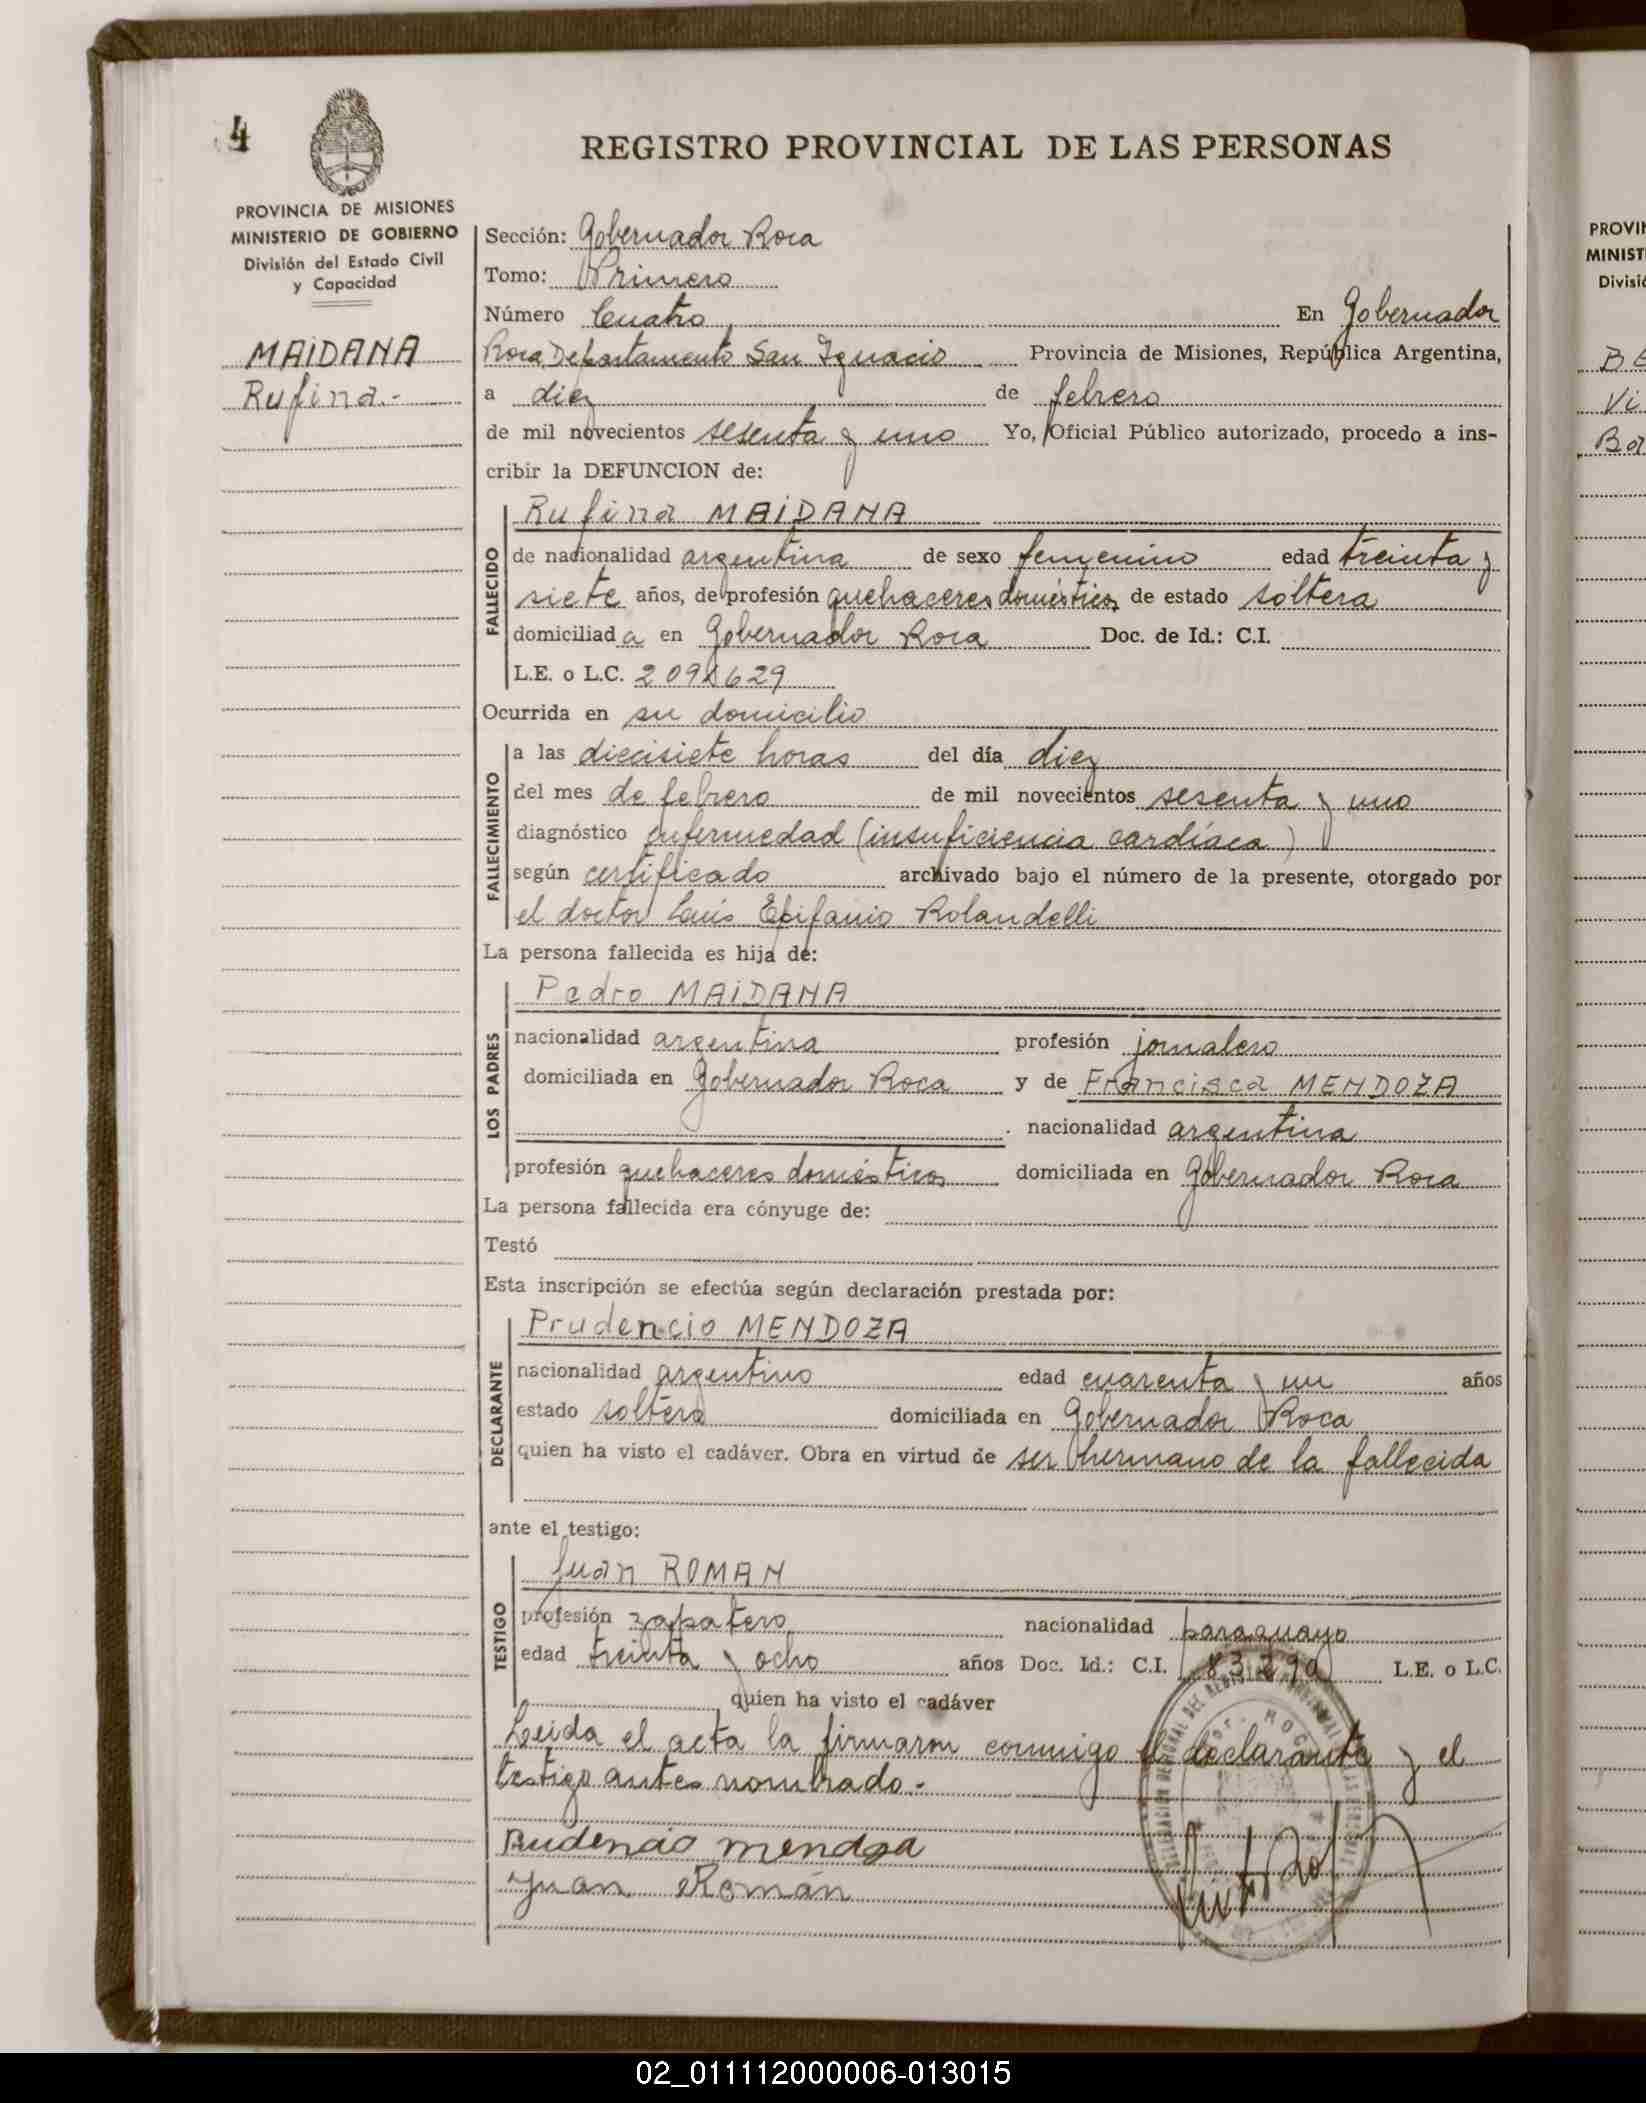 4
REGISTRO PROVINCIAL DE LAS PERSONAS
PROVINCIA DE MISIONES
MINISTERIO DE GOBIERNO
División del Estado Civil
y Capacidad
MAIDANA
Rufina.-
Sección: Gobernador Roca
Tomo: Primero
Número Cuatro En Gobernador
Roca, Departamento San Ignacio Provincia de Misiones, República Argentina,
a diez de febrero
de mil novecientos sesenta y uno Yo, Oficial Público autorizado, procedo a ins-
cribir la DEFUNCION de:
FALLECIDO
Rufina MAIDANA
de nacionalidad argentina de sexo femenino edad treinta y
siete años, de profesión quehaceres domésticos de estado soltera
domiciliada en Gobernador Roca Doc. de Id.: C.I.
L.E. o L.C.
Ocurrida en su domicilio
FALLECIMIENTO
a las diecisiete horas del día diez
del mes de febrero de mil novecientos sesenta y uno
diagnóstico enfermedad (insuficiencia cardíaca)
según certificado archivado bajo el número de la presente, otorgado por
el doctor Luis Epifanio Rolandelli
La persona fallecida es hija de:
LOS PADRES
Pedro MAIDANA
nacionalidad argentina profesión jornalero
domiciliada en Gobernador Roca y de Francisca MENDOZA
nacionalidad argentina
profesión quehaceres domésticos domiciliada en Gobernador Roca
La persona fallecida era cónyuge de:
Testó
Esta inscripción se efectúa según declaración prestada por:
DECLARANTE
Prudencio MENDOZA
nacionalidad argentino edad cuarenta y un años
estado soltero domiciliada en Gobernador Roca
quien ha visto el cadáver. Obra en virtud de ser hermano de la fallecida
ante el testigo:
TESTIGO
Juan ROMAN
profesión zapatero nacionalidad paraguayo
edad treinta y ocho años Doc. Id.: C.I. L.E. o L.C.
quien ha visto el cadáver
Leida el acta la firmaron conmigo el declarante y el
testigo antes nombrado.-
Prudencio Mendoza
Juan Román
PROVIN
MINIST
Divisió
02_011112000006-013015